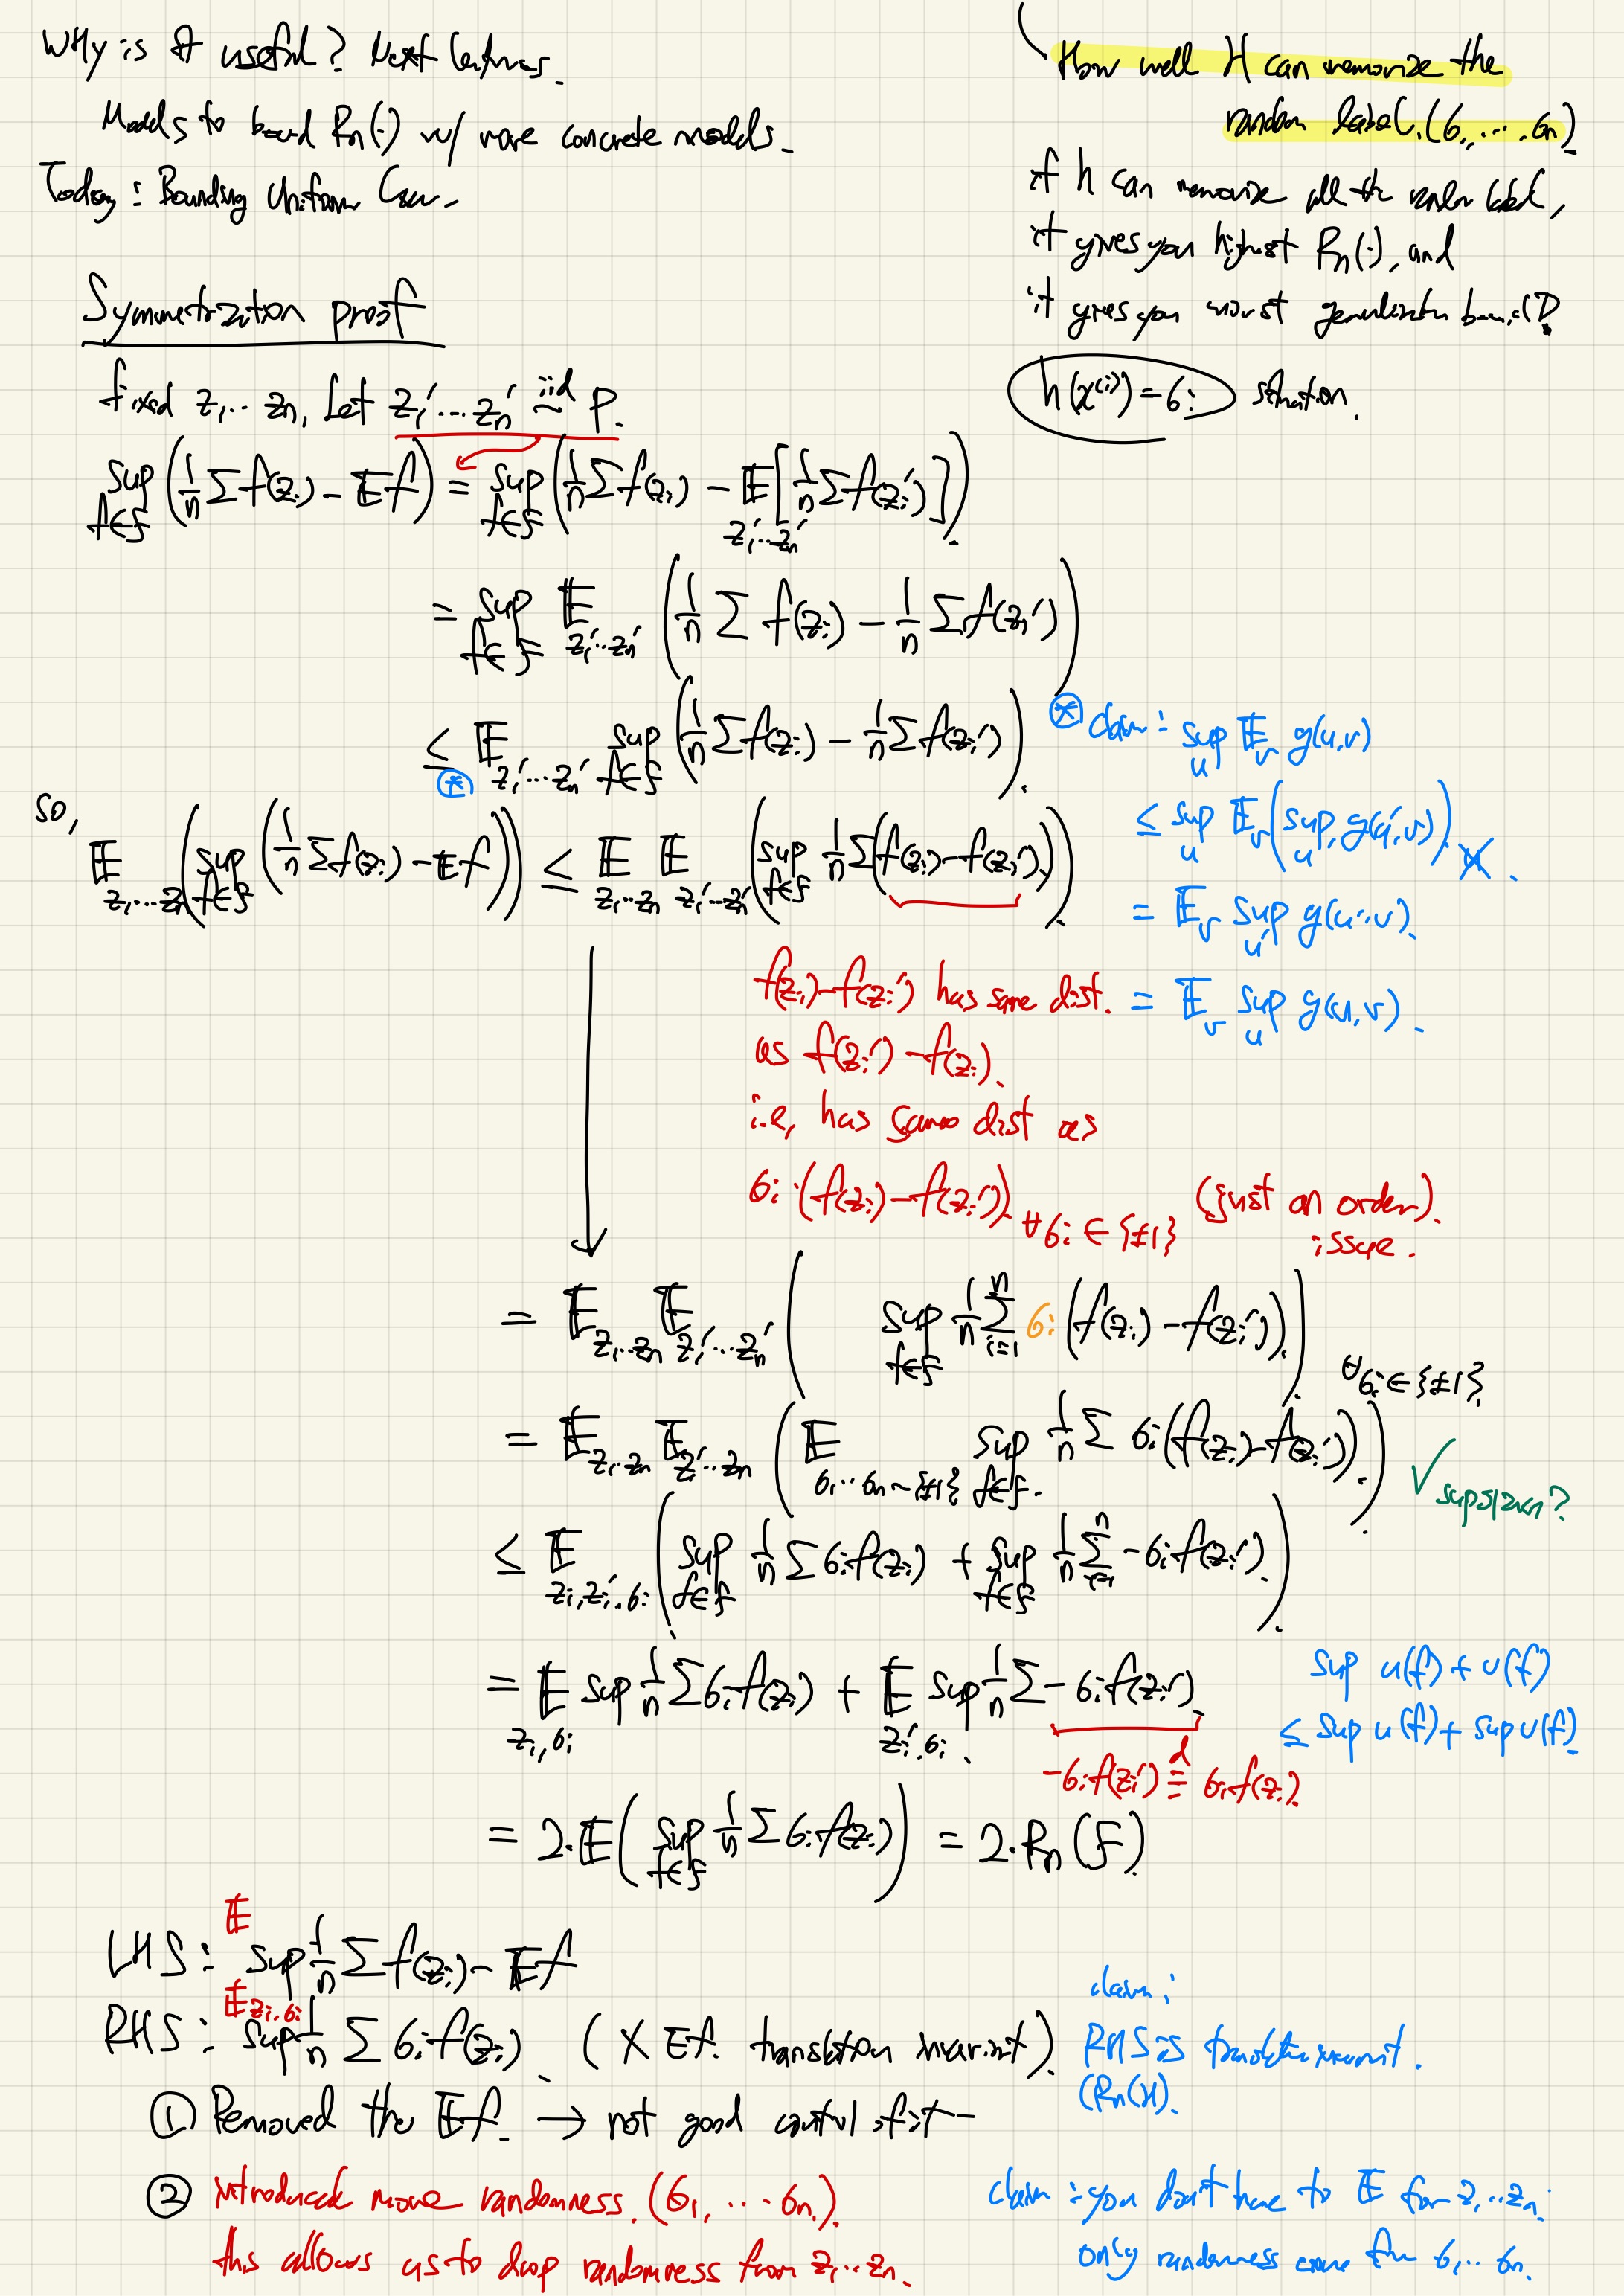 Why is it useful? Next lectures.
Models to bound Rn(·) w/ more concrete models.
Today: Bounding Uniform Conv.
How well H can memorize the
random label. (σ1, ..., σn)
if h can memorize all the random label,
it gives you highest Rn(·), and
it gives you worst generalization bound
h(x^(i)) = σi situation.
Symmetrization proof
fixed z1 ... zn, Let z1' ... zn' iid ~ P.
sup_{f∈F} (1/n Σ f(zi) − 𝔼f) = sup_{f∈F} (1/n Σ f(zi) − 𝔼_{z1'...zn'} [1/n Σ f(zi')])
= sup_{f∈F} 𝔼_{z1'...zn'} (1/n Σ f(zi) − 1/n Σ f(zn'))
≤ 𝔼_{z1'...zn'} sup_{f∈F} (1/n Σ f(zi) − 1/n Σ f(zi')).
⊛
⊛ claim: sup_u 𝔼_v g(u,v)
≤ sup_u 𝔼_v (sup_{u'} g(u',v))
= 𝔼_v sup_{u'} g(u',v).
= 𝔼_v sup_u g(u,v).
so,
𝔼_{z1...zn} (sup_{f∈F} (1/n Σ f(zi) − 𝔼f)) ≤ 𝔼_{z1...zn} 𝔼_{z1'...zn'} (sup_{f∈F} 1/n Σ (f(zi) − f(zi'))).
f(zi) − f(zi') has same dist.
as f(zi') − f(zi).
i.e, has same dist as
σi · (f(zi) − f(zi')) ∀σi ∈ {±1} (just an order).
issue.
= 𝔼_{z1...zn} 𝔼_{z1'...zn'} (sup_{f∈F} 1/n Σ_{i=1}^n σi (f(zi) − f(zi'))).
∀σi ∈ {±1}
= 𝔼_{z1...zn} 𝔼_{z1'...zn'} (𝔼_{σ1...σn~{±1}} sup_{f∈F} 1/n Σ σi (f(zi) − f(zi'))).
≤ 𝔼_{zi,zi',σi} (sup_{f∈F} 1/n Σ σi f(zi) + sup_{f∈F} 1/n Σ_{i=1}^n −σi f(zi')).
= 𝔼_{zi,σi} sup 1/n Σ σi f(zi) + 𝔼_{zi',σi} sup 1/n Σ −σi f(zi').
sup u(f) + v(f)
≤ sup u(f) + sup v(f)
−σi f(zi') =^d σi f(zi).
= 2·𝔼(sup_{f∈F} 1/n Σ σi f(zi)) = 2·Rn(F).
LHS: 𝔼 sup 1/n Σ f(zi) − 𝔼f
RHS: 𝔼_{zi,σi} sup 1/n Σ σi f(zi). (X 𝔼f. translation invariant).
claim:
RHS is translation invariant.
(Rn(H)).
① Removed the 𝔼f. → not good control of it
② introduced more randomness. (σ1, ... σn).
this allows us to drop randomness from z1...zn.
claim: you don't have to 𝔼 for z1...zn.
only randomness come from σ1...σn.